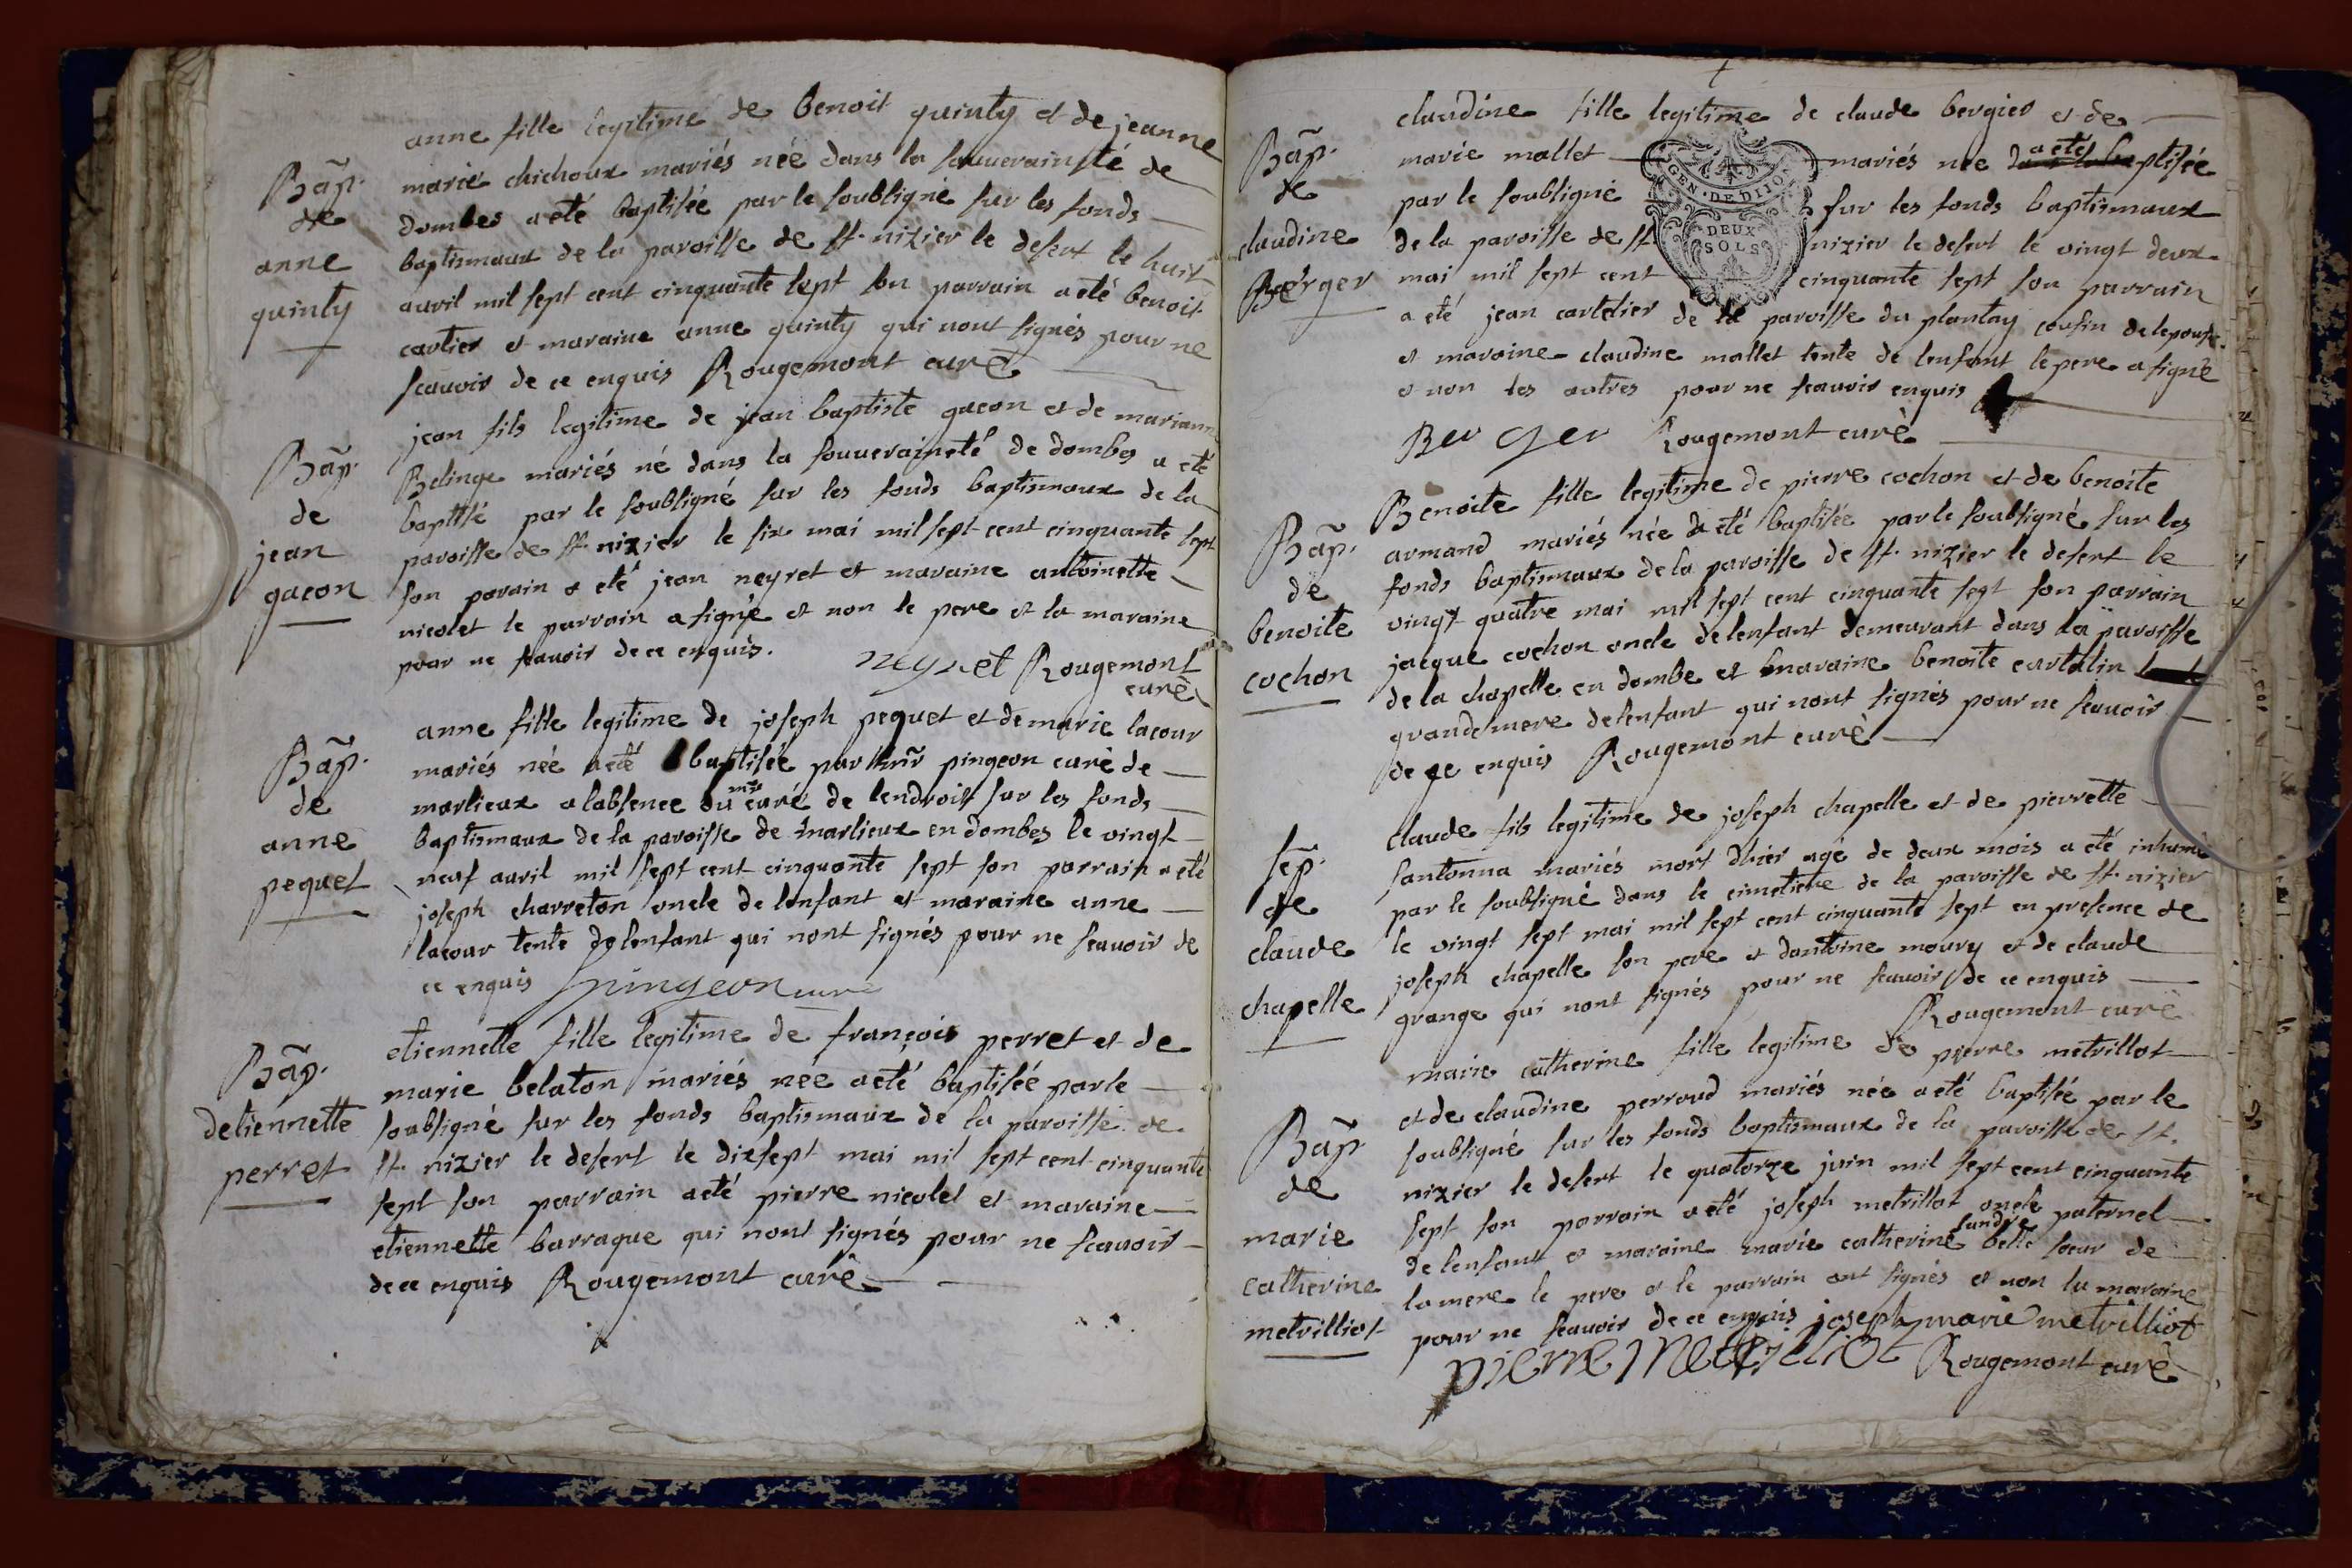 anne fille legitime de benoit quinty et de jeanne
Bãp. marie chichoux mariés née dans la souueraineté de
de dombes a eté baptisée par le soubsigné sur les fonds
anne baptismaux de la paroisse de st. nizier le desert le huit
quinty auril mil sept cent cinquante sept son parrain a eté benoit
cartier et maraine anne quinty qui nont signés pour ne
scauoir de ce enquis Rougemont curé
jean fils legitime de jean baptiste gacon et de mariann
Bãp. Belinge mariés né dans la souueraineté de dombes a eté
de baptisé par le soubsigné sur les fonds baptismaux de la
jean paroisse de st. nizier le six mai mil sept cent cinquante sept
gacon son parain a eté jean neyret et maraine antoinette
nicolet le parrain a signé et non le pere et la maraine
pour ne scauoir de ce enquis. neyret Rougemont
curé
anne fille legitime de joseph pequet et de marie lacour
Bãp. mariés née a eté baptisée par pingeon curé de
de marlieux a labsence du mre curé de lendroit sur les fonds
anne baptismaux de la paroisse de marlieux en dombes le vingt
pequet neuf auril mil sept cent cinquante sept son parrain a eté
joseph charreton oncle de lenfant et maraine anne
lacour tente de lenfant qui nont signés pour ne scauoir de
ce enquis pingeon curé
etiennette fille legitime de françois perret et de
Bãp. marie belaton mariés née a eté baptisée par le
detiennette soubsigné sur les fonds baptismaux de la paroisse de
perret st. nizier le desert le dixsept mai mil sept cent cinquante
sept son parrain a eté pierre nicolet et maraine
etiennette barraque qui nont signés pour ne scauoir
de ce enquis Rougemont curé
claudine fille legitime de claude bergier et de
Bãp. marie mallet mariés née a eté baptisée
de par le soubsigné sur les fonds baptismaux
claudine de la paroisse de st. nizier le desert le vingt deux
Berger mai mil sept cent cinquante sept son parrain
GEN. DE DIJON
DEUX
SOLS
a eté jean cartelier de la paroisse du plantay cousin de lepouse
et maraine claudine mallet tente de lenfant le pere a signé
et non les autres pour ne scauoir enquis
Berger Rougemont curé
Benoite fille legitime de pierre cochon et de benoite
Bãp. armand mariés née a eté baptisée par le soubsigné sur les
de fonds baptismaux de la paroisse de st. nizier le desert le
benoite vingt quatre mai mil sept cent cinquante sept son parrain
cochon jacque cochon oncle de lenfant demeurant dans la paroisse
de la chapelle en dombe et maraine benoite cartalin
grandemere de lenfant qui nont signés pour ne scauoir
de ce enquis Rougemont curé
claude fils legitime de joseph chapelle et de pierrette
sep. santonna mariés mort dhier agé de deux mois a eté inhumé
de par le soubsigné dans le cimetiere de la paroisse de st. nizier
claude le vingt sept mai mil sept cent cinquante sept en presence de
chapelle joseph chapelle son pere et dantoine moury et de claude
grange qui nont signés pour ne scauoir de ce enquis
Rougemont curé
marie catherine fille legitime de pierre metrillot
et de claudine perroud mariés née a eté baptisée par le
Bãp soubsigné sur les fonds baptismaux de la paroisse de st.
de nizier le desert le quatorze juin mil sept cent cinquante
marie sept son parrain a eté joseph metrillot oncle paternel
catherine de lenfant et maraine marie catherine landre belle soeur de
metrilliot la mere le pere et le parrain ont signés et non la maraine
pour ne scauoir de ce enquis joseph marie metrilliot
pierre metrilliot Rougemont curé